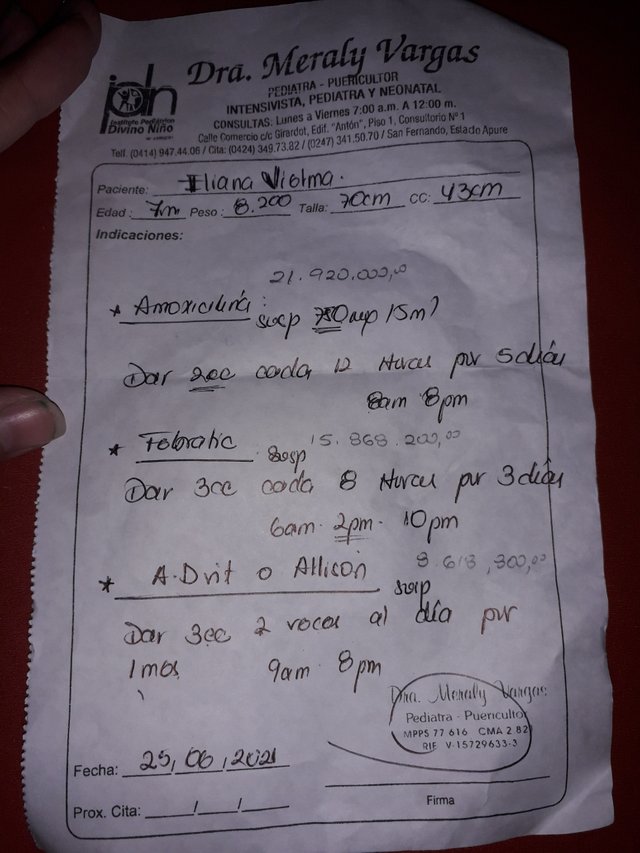 jpdn
Instituto Pediátrico
Divino Niño
Dra. Meraly Vargas
PEDIATRA - PUERICULTOR
INTENSIVISTA, PEDIATRA Y NEONATAL
CONSULTAS: Lunes a Viernes 7:00 a.m. A 12:00 m.
Calle Comercio c/c Girardot, Edif. "Antón", Piso 1, Consultorio Nº 1
Telf. (0414) 947.44.06 / Cita: (0424) 349.73.82 / (0247) 341.50.70 / San Fernando, Estado Apure
Paciente: Iliana
Edad: 7m Peso: 8.200 Talla: 70cm CC: 43cm
Indicaciones:
21.920.000,00
* Amoxicilina: susp /5ml
Dar 2cc cada 12 Horas por 5 días
8am 8pm
* Febratic susp 15.868.200,00
Dar 3cc cada 8 Horas por 3 días
6am. 2pm. 10pm
* A.Dvit o Allison susp 8.618,300,00
Dar 3cc 2 veces al día por
1mes 9am 8pm
Dra. Meraly Vargas
Pediatra - Puericultor
MPPS 77 616 CMA 2 82
RIF V-15729633-3
Fecha: 25, 06, 2021
Firma
Prox. Cita: / /